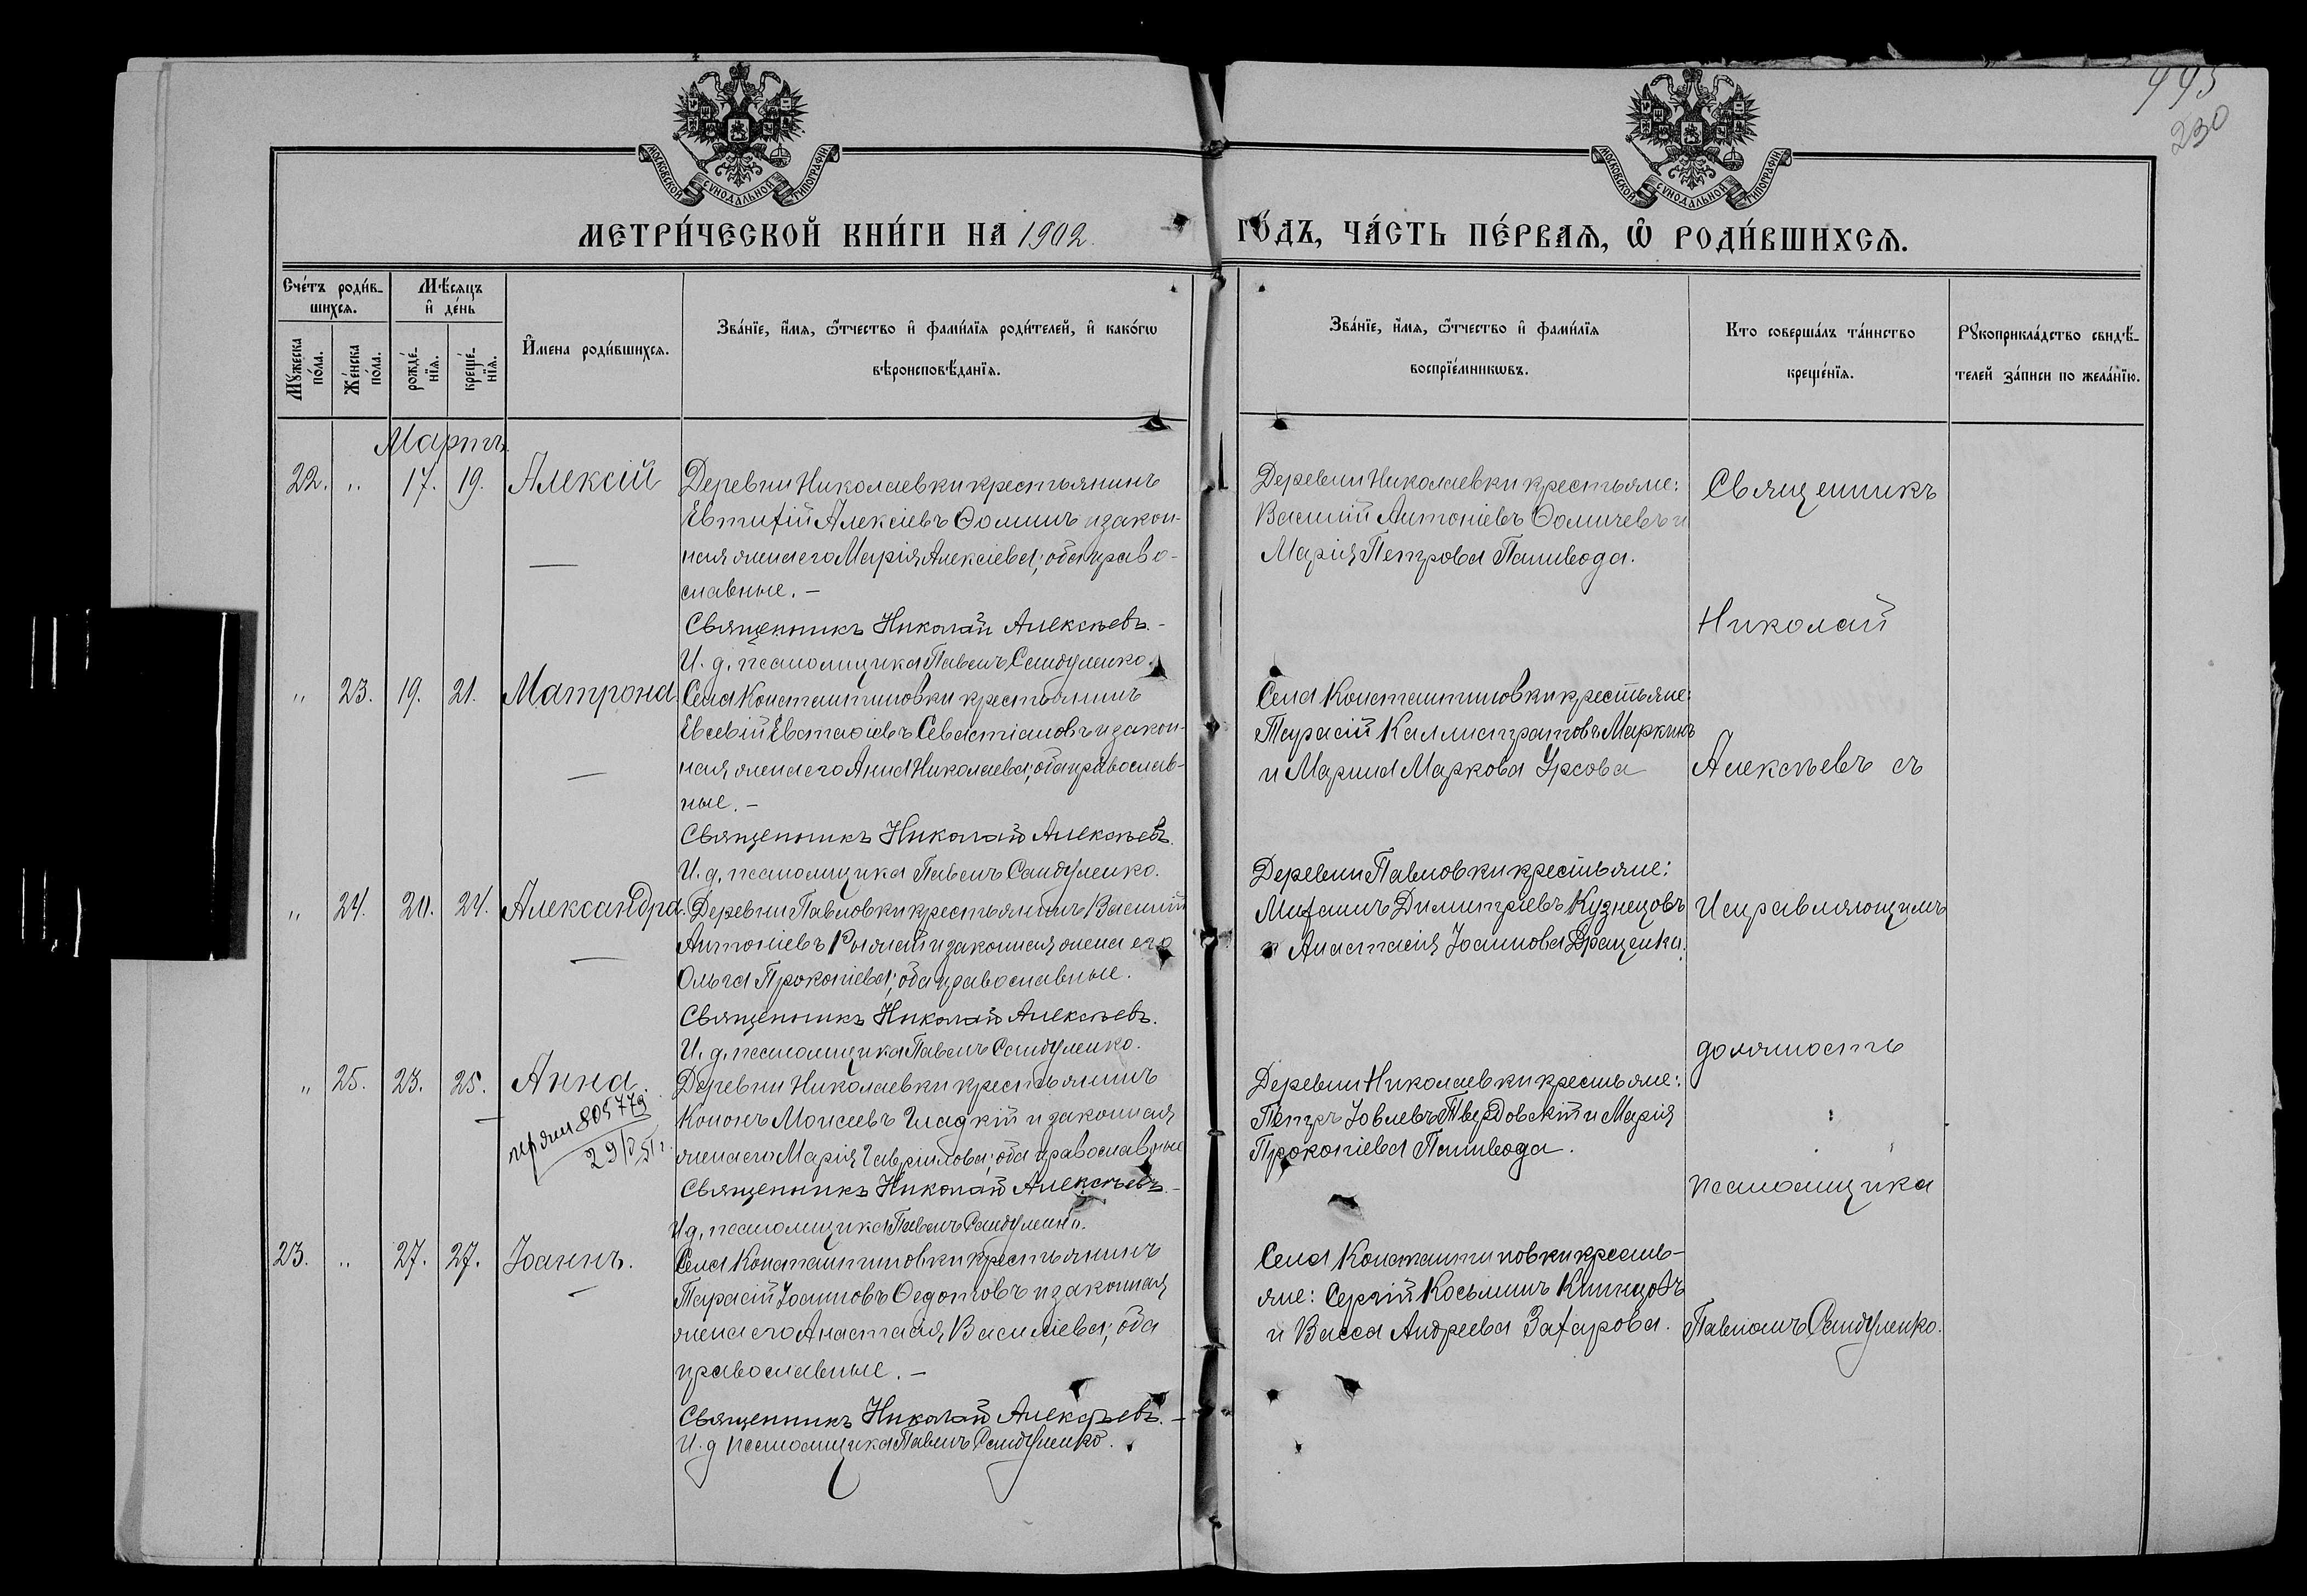 995
230
МОСКОВСКОЙ СѴНОДАЛЬНОЙ ТИПОГРАФІИ
МОСКОВСКОЙ СѴНОДАЛЬНОЙ ТИПОГРАФІИ
МЕТРИ́ЧЕСКОЙ КНИ́ГИ НА 1902.
ГО́ДЪ, ЧА́СТЬ ПЕ́РВАЯ, Ѡ҆ РОДИ́ВШИХСЯ.
Сче́тъ роди́в-
шихся.
Мѣ́сяцъ
и҆ де́нь
Му́жеска по́ла.
Же́нска по́ла.
рожде́-
нїя.
креще́-
нїя.
И҆мена роди́вшихся.
Зва́нїе, и҆́мя, ѻ҆́тчество и҆ фами́лїя роди́телей, и҆ како́гѡ
вѣроисповѣ́данїя.
Зва́нїе, и҆́мя, ѻ҆́тчество и҆ фами́лїя
воспрїе́мникѡвъ.
Кто соверша́лъ та́инство
креще́нїя.
Рукоприкла́дство свидѣ́-
телей за́писи по жела́нїю.
Мартъ.
22. " 17. 19. Алексій
Деревни Николаевки крестьянинъ
Евтихій Алексіевъ Ѳоминъ и закон-
ная жена его Марія Алексіева; оба право-
славные. –
Священникъ Николай Алексѣевъ. –
И. д. псаломщика Павелъ Сандуленко.
Деревни Николаевки крестьяне:
Василій Антоніевъ Ѳомичевъ и
Марія Петрова Паливода.
" 23. 19. 21. Матрона
Села Константиновки крестьянинъ
Евсевій Евстафіевъ Севастіановъ и закон-
ная жена его Анна Николаева; оба православ-
ные. –
Священникъ Николай Алексѣевъ.
И. д. псаломщика Павелъ Сандуленко.
Села Константиновки крестьяне:
Тарасій Каллистратовъ Маркинъ
и Марина Маркова Урсова
" 24. 20. 24. Александра.
Деревни Павловки крестьянинъ Василій
Антоніевъ и законная жена его
Ольга Прокопіева; оба православные.
Священникъ Николай Алексѣевъ.
И. д. псаломщика Павелъ Сандуленко.
Деревни Павловки крестьяне:
Михаилъ Димитріевъ Кузнецовъ
и Анастасія Іоаннова
" 25. 23. 25. Анна.
29/V 51 г.
Деревни Николаевки крестьянинъ
Кононъ Моисеевъ Гладкій и законная
жена его Марія Гавріилова; оба православные
Священникъ Николай Алексѣевъ. –
И д. псаломщика Павелъ Сандуленко.
Деревни Николаевки крестьяне:
Петръ Іовлевъ Твердовскій и Марія
Прокопіева Паливода.
23. " 27. 27. Іоаннъ.
Села Константиновки крестьянинъ
Тарасій Іоанновъ Ѳедотовъ и законная
жена его Анастасія Василіева; оба
православные. –
Священникъ Николай Алексѣевъ. –
И. д псаломщика Павелъ Сандуленко.
Села Константиновки кресть-
яне: Сергій Косьминъ
и Васса Андреева Захарова.
Священникъ
Николай
Алексѣевъ съ
Исправляющимъ
должность
псаломщика
Павломъ Сандуленко.